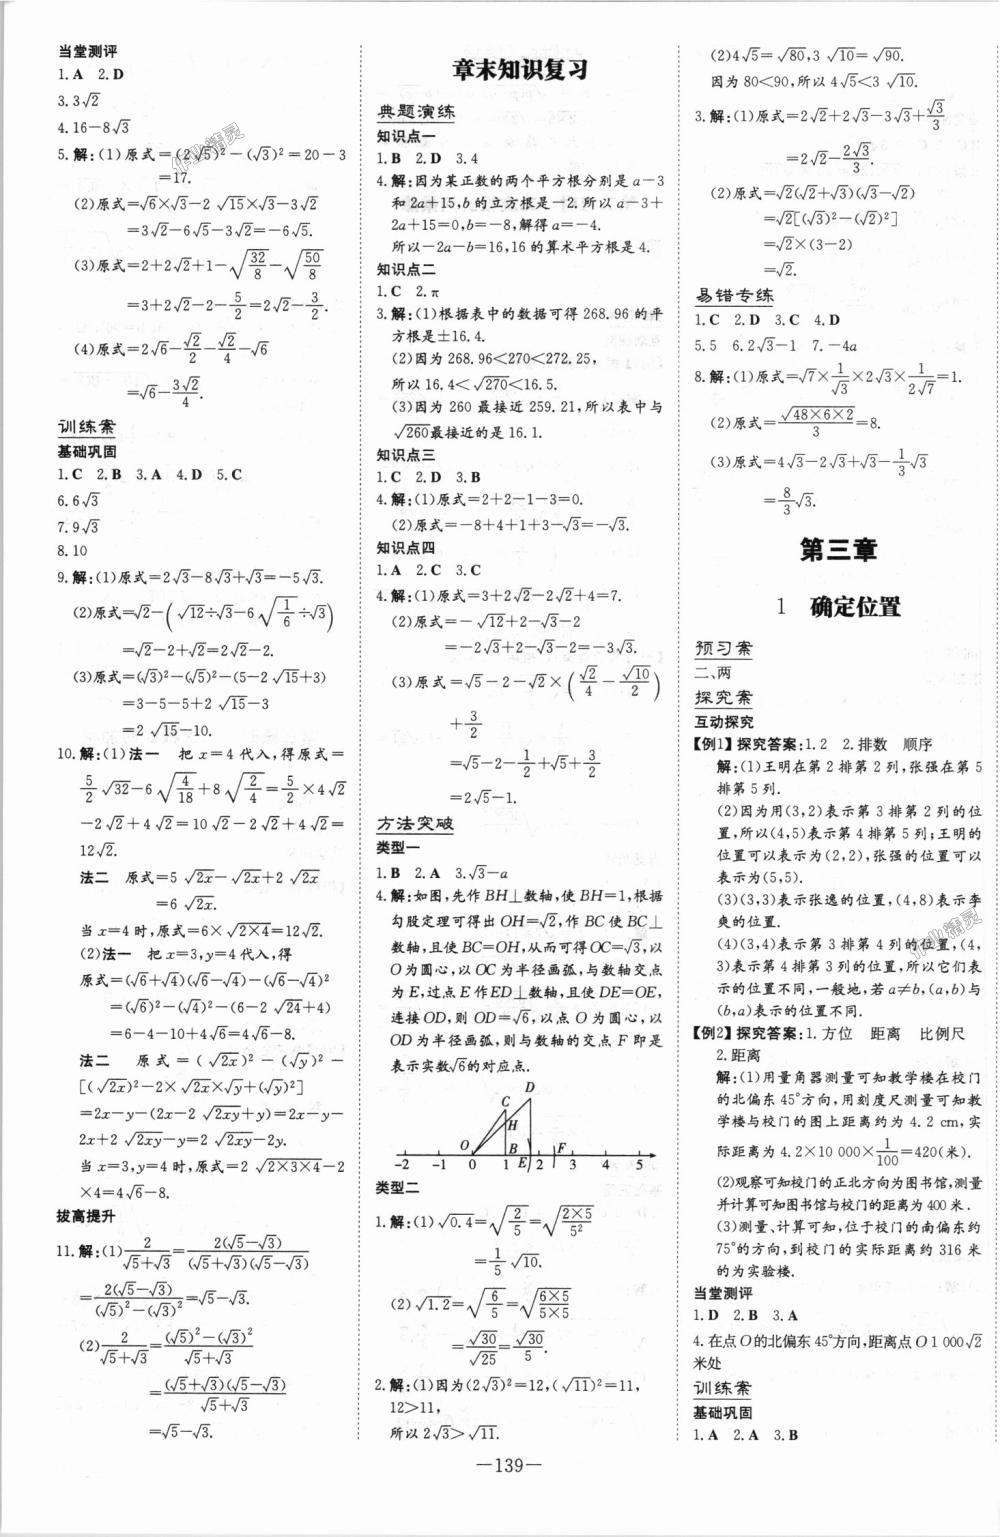 当堂测评
1.A 2.D
3.3√2
4.16-8√3
5.解:(1)原式=(2√5)²-(√3)²=20-3
=17.
(2)原式=√6×√3-2√15×√3-3√2
=3√2-6√5-3√2=-6√5.
(3)原式=2+2√2+1-√(32/8)-√(50/8)
=3+2√2-2-5/2=2√2-3/2.
(4)原式=2√6-√2/2-√2/4-√6
=√6-3√2/4.
训练案
基础巩固
1.C 2.B 3.A 4.D 5.C
6.6√3
7.9√3
8.10
9.解:(1)原式=2√3-8√3+√3=-5√3.
(2)原式=√2-(√12÷√3-6√(1/6)÷√3)
=√2-2+√2=2√2-2.
(3)原式=(√3)²-(√5)²-(5-2√15+3)
=3-5-5+2√15-3
=2√15-10.
10.解:(1)法一 把x=4代入,得原式=
5/2√32-6√(4/18)+8√(2/4)=5/2×4√2
-2√2+4√2=10√2-2√2+4√2=
12√2.
法二 原式=5√2x-√2x+2√2x
=6√2x.
当x=4时,原式=6×√(2×4)=12√2.
(2)法一 把x=3,y=4代入,得
原式=(√6+√4)(√6-√4)-(√6-√4)²
=(√6)²-(√4)²-(6-2√24+4)
=6-4-10+4√6=4√6-8.
法二 原式=(√2x)²-(√y)²-
[(√2x)²-2×√2x×√y+(√y)²]
=2x-y-(2x-2√2xy+y)=2x-y-
2x+2√2xy-y=2√2xy-2y.
当x=3,y=4时,原式=2√(2×3×4)-2
×4=4√6-8.
拔高提升
11.解:(1)2/(√5+√3)=2(√5-√3)/((√5+√3)(√5-√3))
=2(√5-√3)/((√5)²-(√3)²)=√5-√3.
(2)2/(√5+√3)=((√5)²-(√3)²)/(√5+√3)
=(√5+√3)(√5-√3)/(√5+√3)
=√5-√3.
章末知识复习
典题演练
知识点一
1.B 2.D 3.4
4.解:因为某正数的两个平方根分别是a-3
和2a+15,b的立方根是-2.所以a-3+
2a+15=0,b=-8,解得a=-4.
所以-2a-b=16,16的算术平方根是4.
知识点二
1.C 2.π
3.解:(1)根据表中的数据可得268.96的平
方根是±16.4.
(2)因为268.96<270<272.25,
所以16.4<√270<16.5.
(3)因为260最接近259.21,所以表中与
√260最接近的是16.1.
知识点三
1.C 2.D 3.B
4.解:(1)原式=2+2-1-3=0.
(2)原式=-8+4+1+3-√3=-√3.
知识点四
1.A 2.C 3.C
4.解:(1)原式=3+2√2-2√2+4=7.
(2)原式=-√12+2-√3-2
=-2√3+2-√3-2=-3√3.
(3)原式=√5-2-√2×(√2/4-√10/2)
+3/2
=√5-2-1/2+√5+3/2
=2√5-1.
方法突破
类型一
1.B 2.A 3.√3-a
4.解:如图,先作BH⊥数轴,使BH=1,根据
勾股定理可得出OH=√2,作BC使BC⊥
数轴,且使BC=OH,从而可得OC=√3,以
O为圆心,以OC为半径画弧,与数轴交点
为E,过点E作ED⊥数轴,且使DE=OE,
连接OD,则OD=√6,以点O为圆心,以
OD为半径画弧,则与数轴的交点F即是
表示实数√6的对应点.
D
C
H
O B E F
-2 -1 0 1 2 3 4 5
类型二
1.解:(1)√0.4=√(2/5)=√(2×5/5²)
=1/5√10.
(2)√1.2=√(6/5)=√(6×5/5×5)
=√30/√25=√30/5.
2.解:(1)因为(2√3)²=12,(√11)²=11,
12>11,
所以2√3>√11.
(2)4√5=√80,3√10=√90.
因为80<90,所以4√5<3√10.
3.解:(1)原式=2√2+2√3-3√3+√3/3
=2√2-2√3/3.
(2)原式=√2(√2+√3)(√3-√2)
=√2[(√3)²-(√2)²]
=√2×(3-2)
=√2.
易错专练
1.C 2.D 3.C 4.D
5.5 6.2√3-1 7.-4a
8.解:(1)原式=√7×1/√3×2√3×1/(2√7)=1.
(2)原式=√(48×6×2)/3=8.
(3)原式=4√3-2√3+√3-1/3√3
=8/3√3.
第三章
1 确定位置
预习案
二、两
探究案
互动探究
【例1】探究答案:1.2 2.排数 顺序
解:(1)王明在第2排第2列,张强在第5
排第5列.
(2)因为用(3,2)表示第3排第2列的位
置,所以(4,5)表示第4排第5列;王明的
位置可以表示为(2,2),张强的位置可以
表示为(5,5).
(3)(3,3)表示张逸的位置,(4,8)表示李
爽的位置.
(4)(3,4)表示第3排第4列的位置,(4,
3)表示第4排第3列的位置,所以它们表
示的位置不同,一般地,若a≠b,(a,b)与
(b,a)表示的位置不同.
【例2】探究答案:1.方位 距离 比例尺
2.距离
解:(1)用量角器测量可知教学楼在校门
的北偏东45°方向,用刻度尺测量可知教
学楼与校门的图上距离约为4.2 cm,实
际距离为4.2×10 000×1/100=420(米).
(2)观察可知校门的正北方向为图书馆,测量
并计算可知图书馆与校门的距离为400米.
(3)测量、计算可知,位于校门的南偏东约
75°的方向,到校门的实际距离约316米
的为实验楼.
当堂测评
1.D 2.B 3.A
4.在点O的北偏东45°方向,距离点O 1 000√2
米处
训练案
基础巩固
1.A 2.A 3.B
—139—